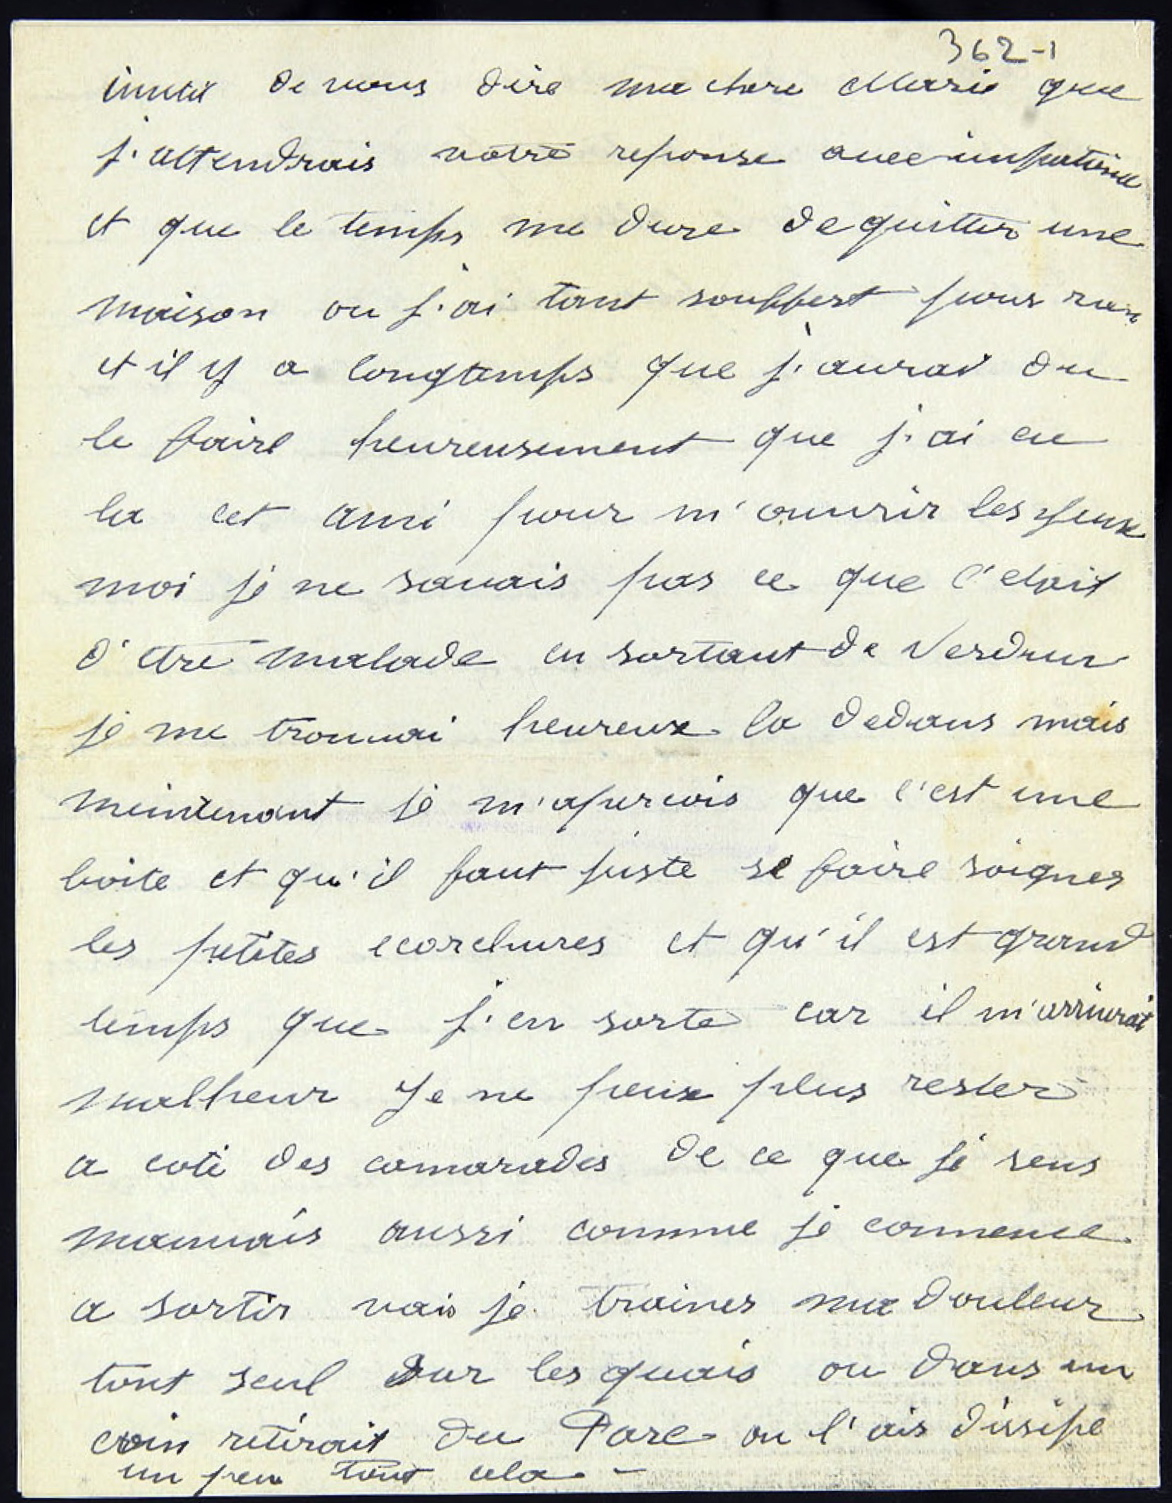 362-1
inutil de vous dire ma chere Marie que
j'attendrais votre reponse avec impatience
et que le temps me dure de quitter une
maison ou j'ai tant souffert pour rien
et il y a longtemps que j'aurai du
le faire heureusement que j'ai eu
la cet ami pour m'ouvrir les yeux
moi je ne savais pas ce que c'etait
d'être malade en sortant de Verdun
je me trouvai heureux la dedans mais
meintenant je m'apercois que c'est une
boite et qu'il faut juste se faire soigner
les petites ecorchures et qu'il est grand
temps que j'en sorte car il m'arriverait
malheur Je ne peux plus rester
a coté des camarades de ce que je sens
mauvais aussi comme je commence
a sortir vais je trainer ma douleur
tout seul sur les quais ou dans un
coin retirait du Parc ou l'ais dissipe
un peu tout cela -